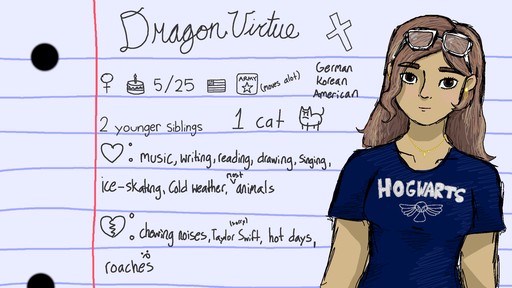 Dragon Virtue
German
5/25 ARMY (moves alot) Korean
American
2 younger siblings 1 cat
: music, writing, reading, drawing, singing,
ice-skating, cold weather, most animals
HOGWARTS
: chewing noises, Taylor Swift, hot days,
roaches